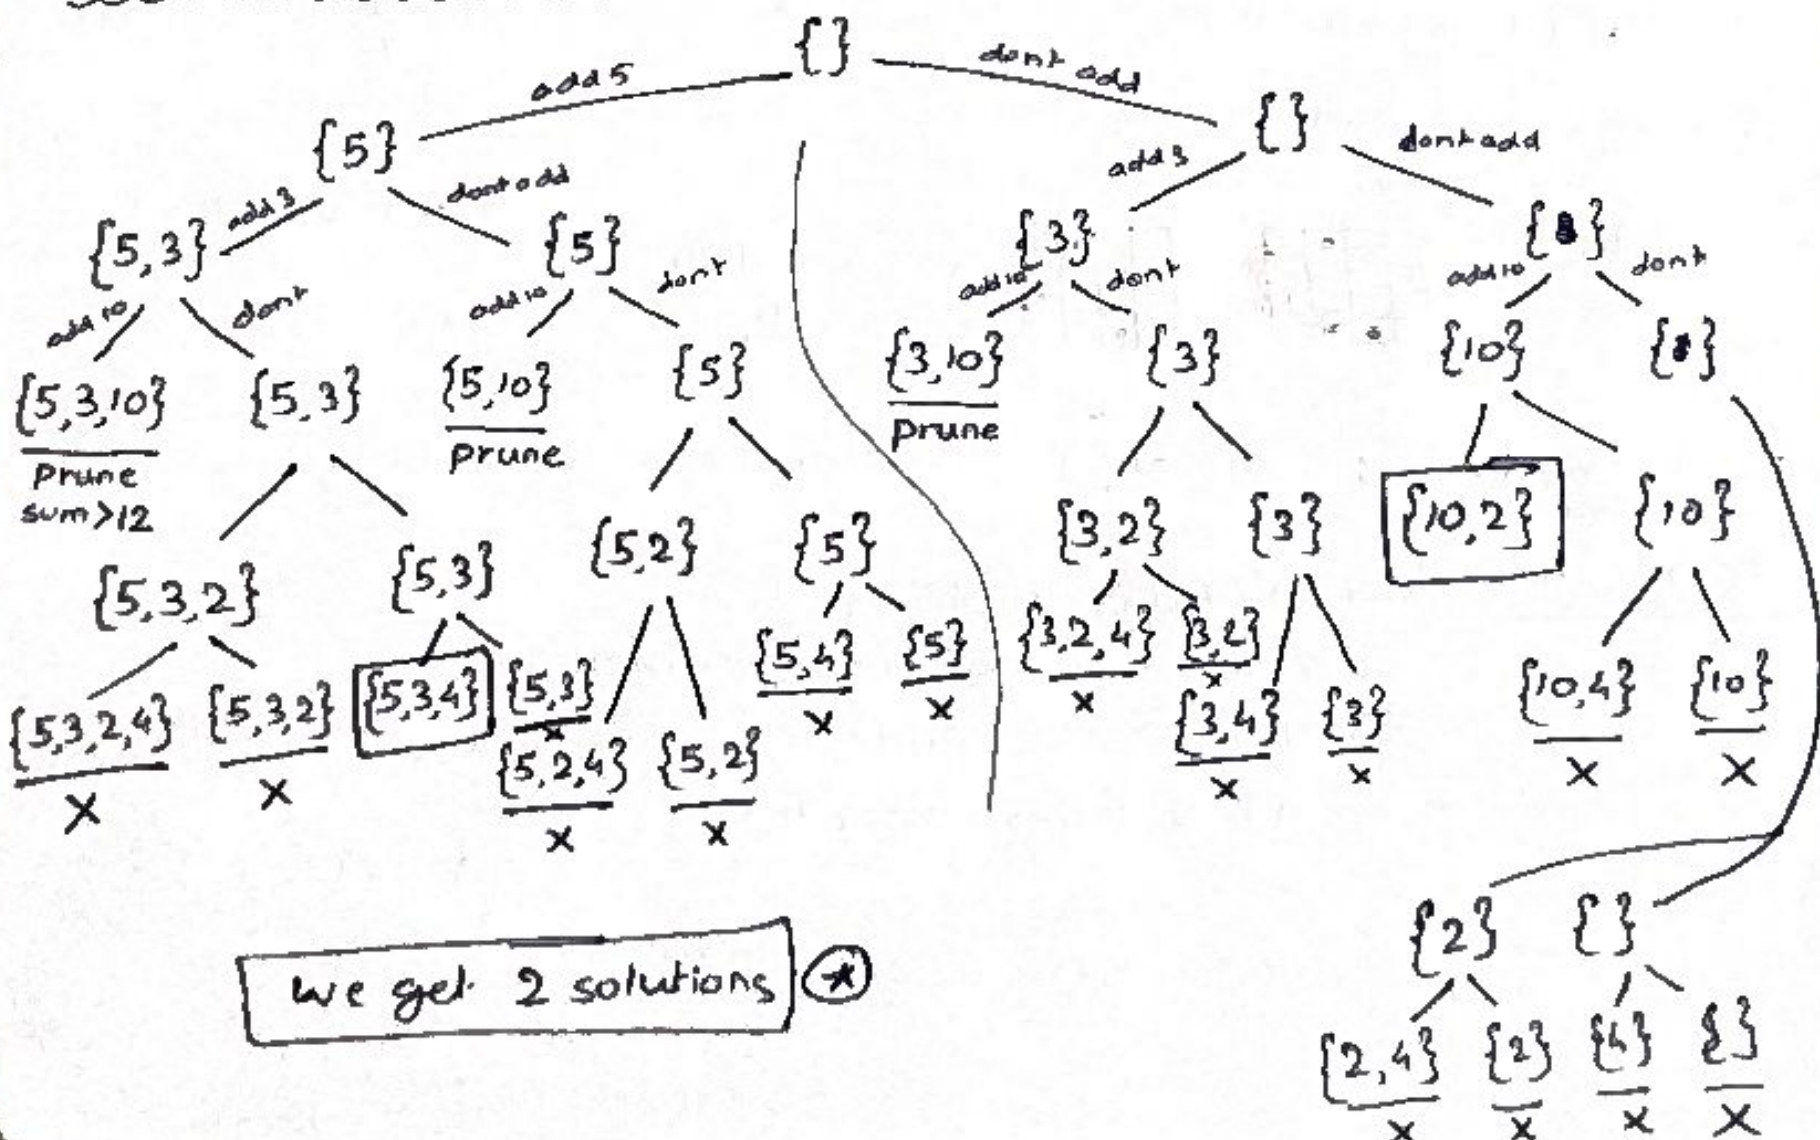 { }
add 5
dont add
{5}
{ }
add 3
dont add
add 3
dont add
{5,3}
{5}
{3}
{ }
add 10
dont
add 10
dont
add 10
dont
add 10
dont
{5,3,10}
{5,3}
{5,10}
{5}
{3,10}
{3}
{10}
{ }
prune
sum>12
prune
prune
{5,3,2}
{5,3}
{5,2}
{5}
{3,2}
{3}
{10,2}
{10}
{5,3,2,4}
{5,3,2}
{5,3,4}
{5,3}
{5,2,4}
{5,2}
{5,4}
{5}
{3,2,4}
{3,2}
{3,4}
{3}
{10,4}
{10}
x
x
x
x
x
x
x
x
x
x
x
x
x
{2}
{ }
{2,4}
{2}
{4}
{ }
x
x
x
x
we get 2 solutions *